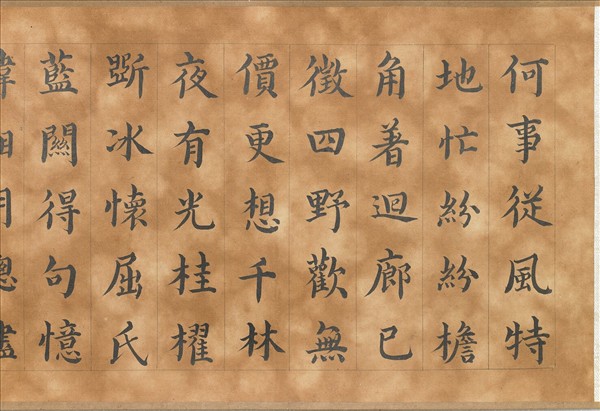 何事従風特
地忙紛紛檐
角著迴廊已
徵四野歡無
價更想千林
夜有光桂櫂
斲冰懷屈氏
藍關得句憶